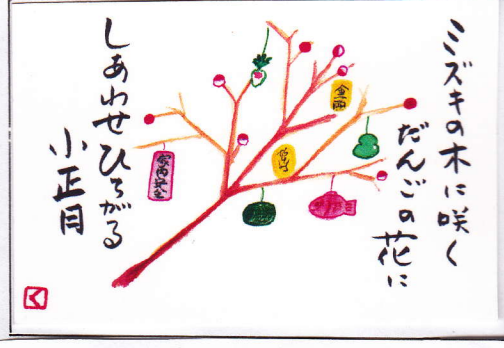 ミズキの木に咲く
だんごの花に
しあわせひろがる
小正月
家内安全
く